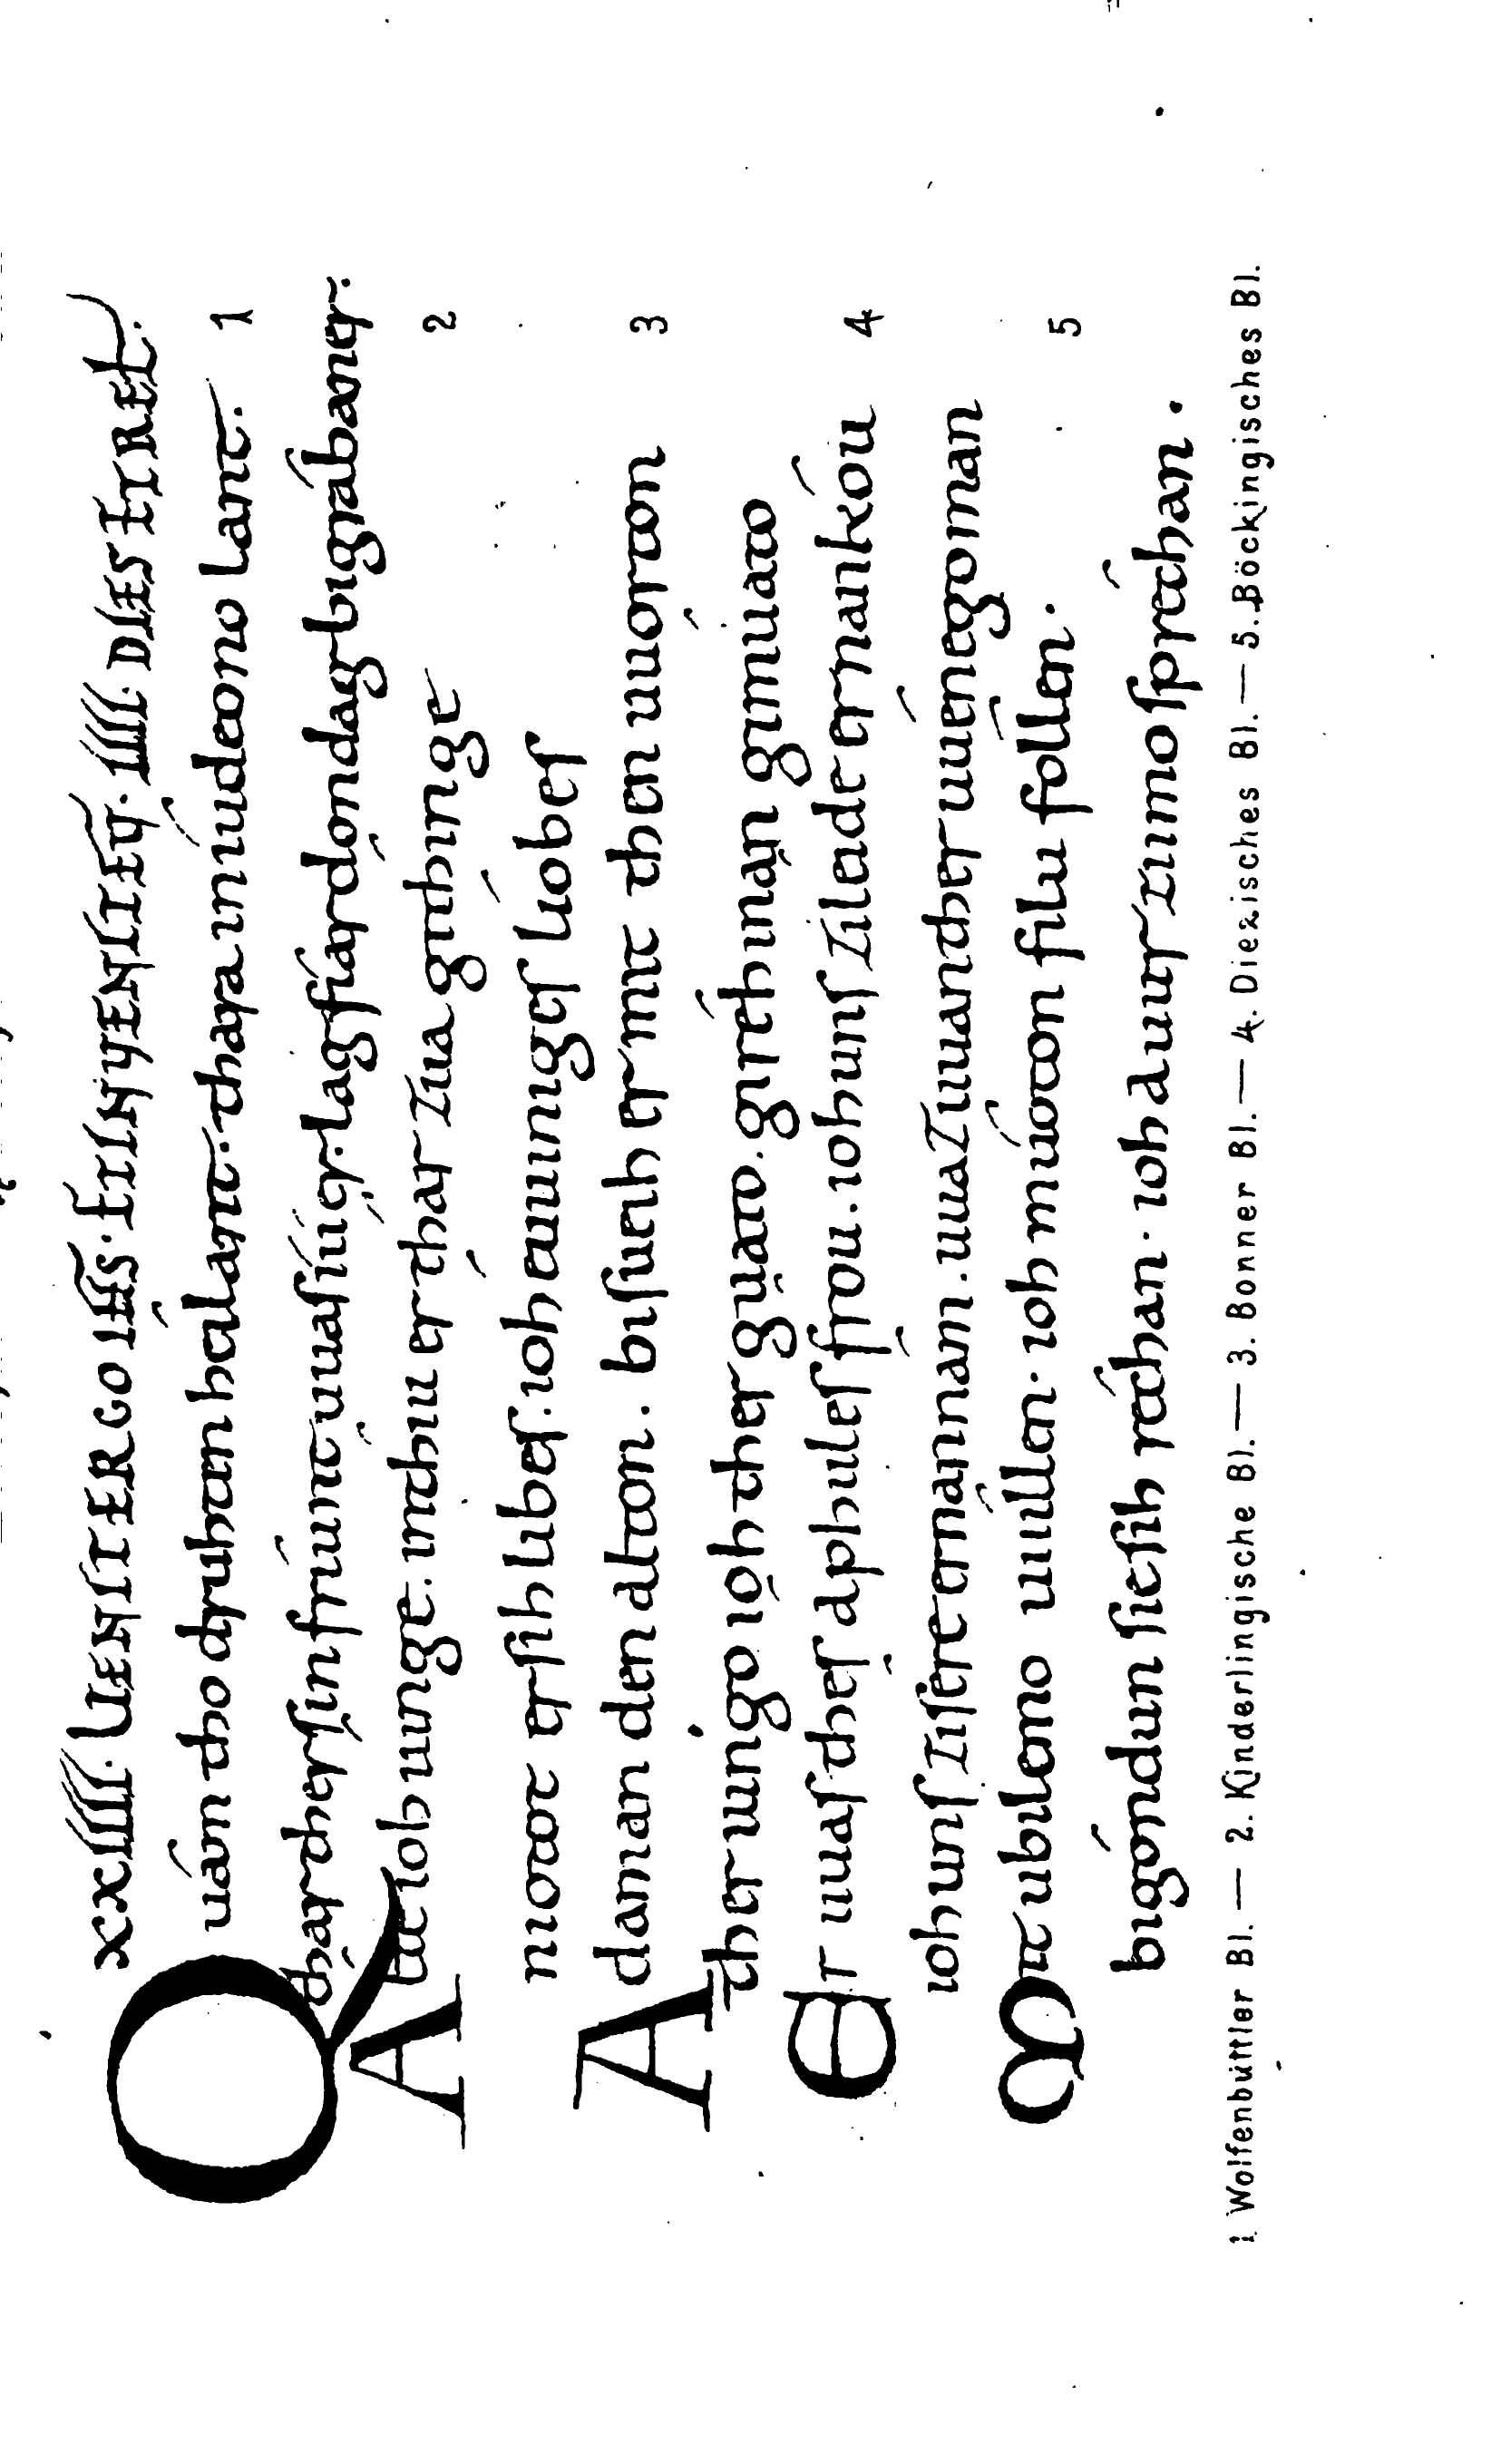 XXIIII. UENIT ERGO IHS. ET INVENIT EU. IIII. DIES ET REL.
Quám tho druhten heilant. thara in iudeono lant. 1
thar ther sin friunt uuas íuer. lag fiardon dag er bigrábaner.
in thiu er thar zua githinge 2
niozot er sih libes. ioh euuiniges liobes
Adaman den alton. bisueih er mit then uuorton 3
ther iungo ioh ther guato. giréh inan gimuato
Er uuas thes aphules frou. ioh uns zi leide er nan kóu 4
ioh uns zi sere er nan nam. uuenego man
Mit ubilemo uuillen. ioh múoton filu follen. 5
bigóndun sie sih réchan. ioh auur zi imo spréchan.
1. Wolfenbüttler Bl. — 2. Kinderlingische Bl. — 3. Bonner Bl. — 4. Diezisches Bl. — 5. Böckingisches Bl.